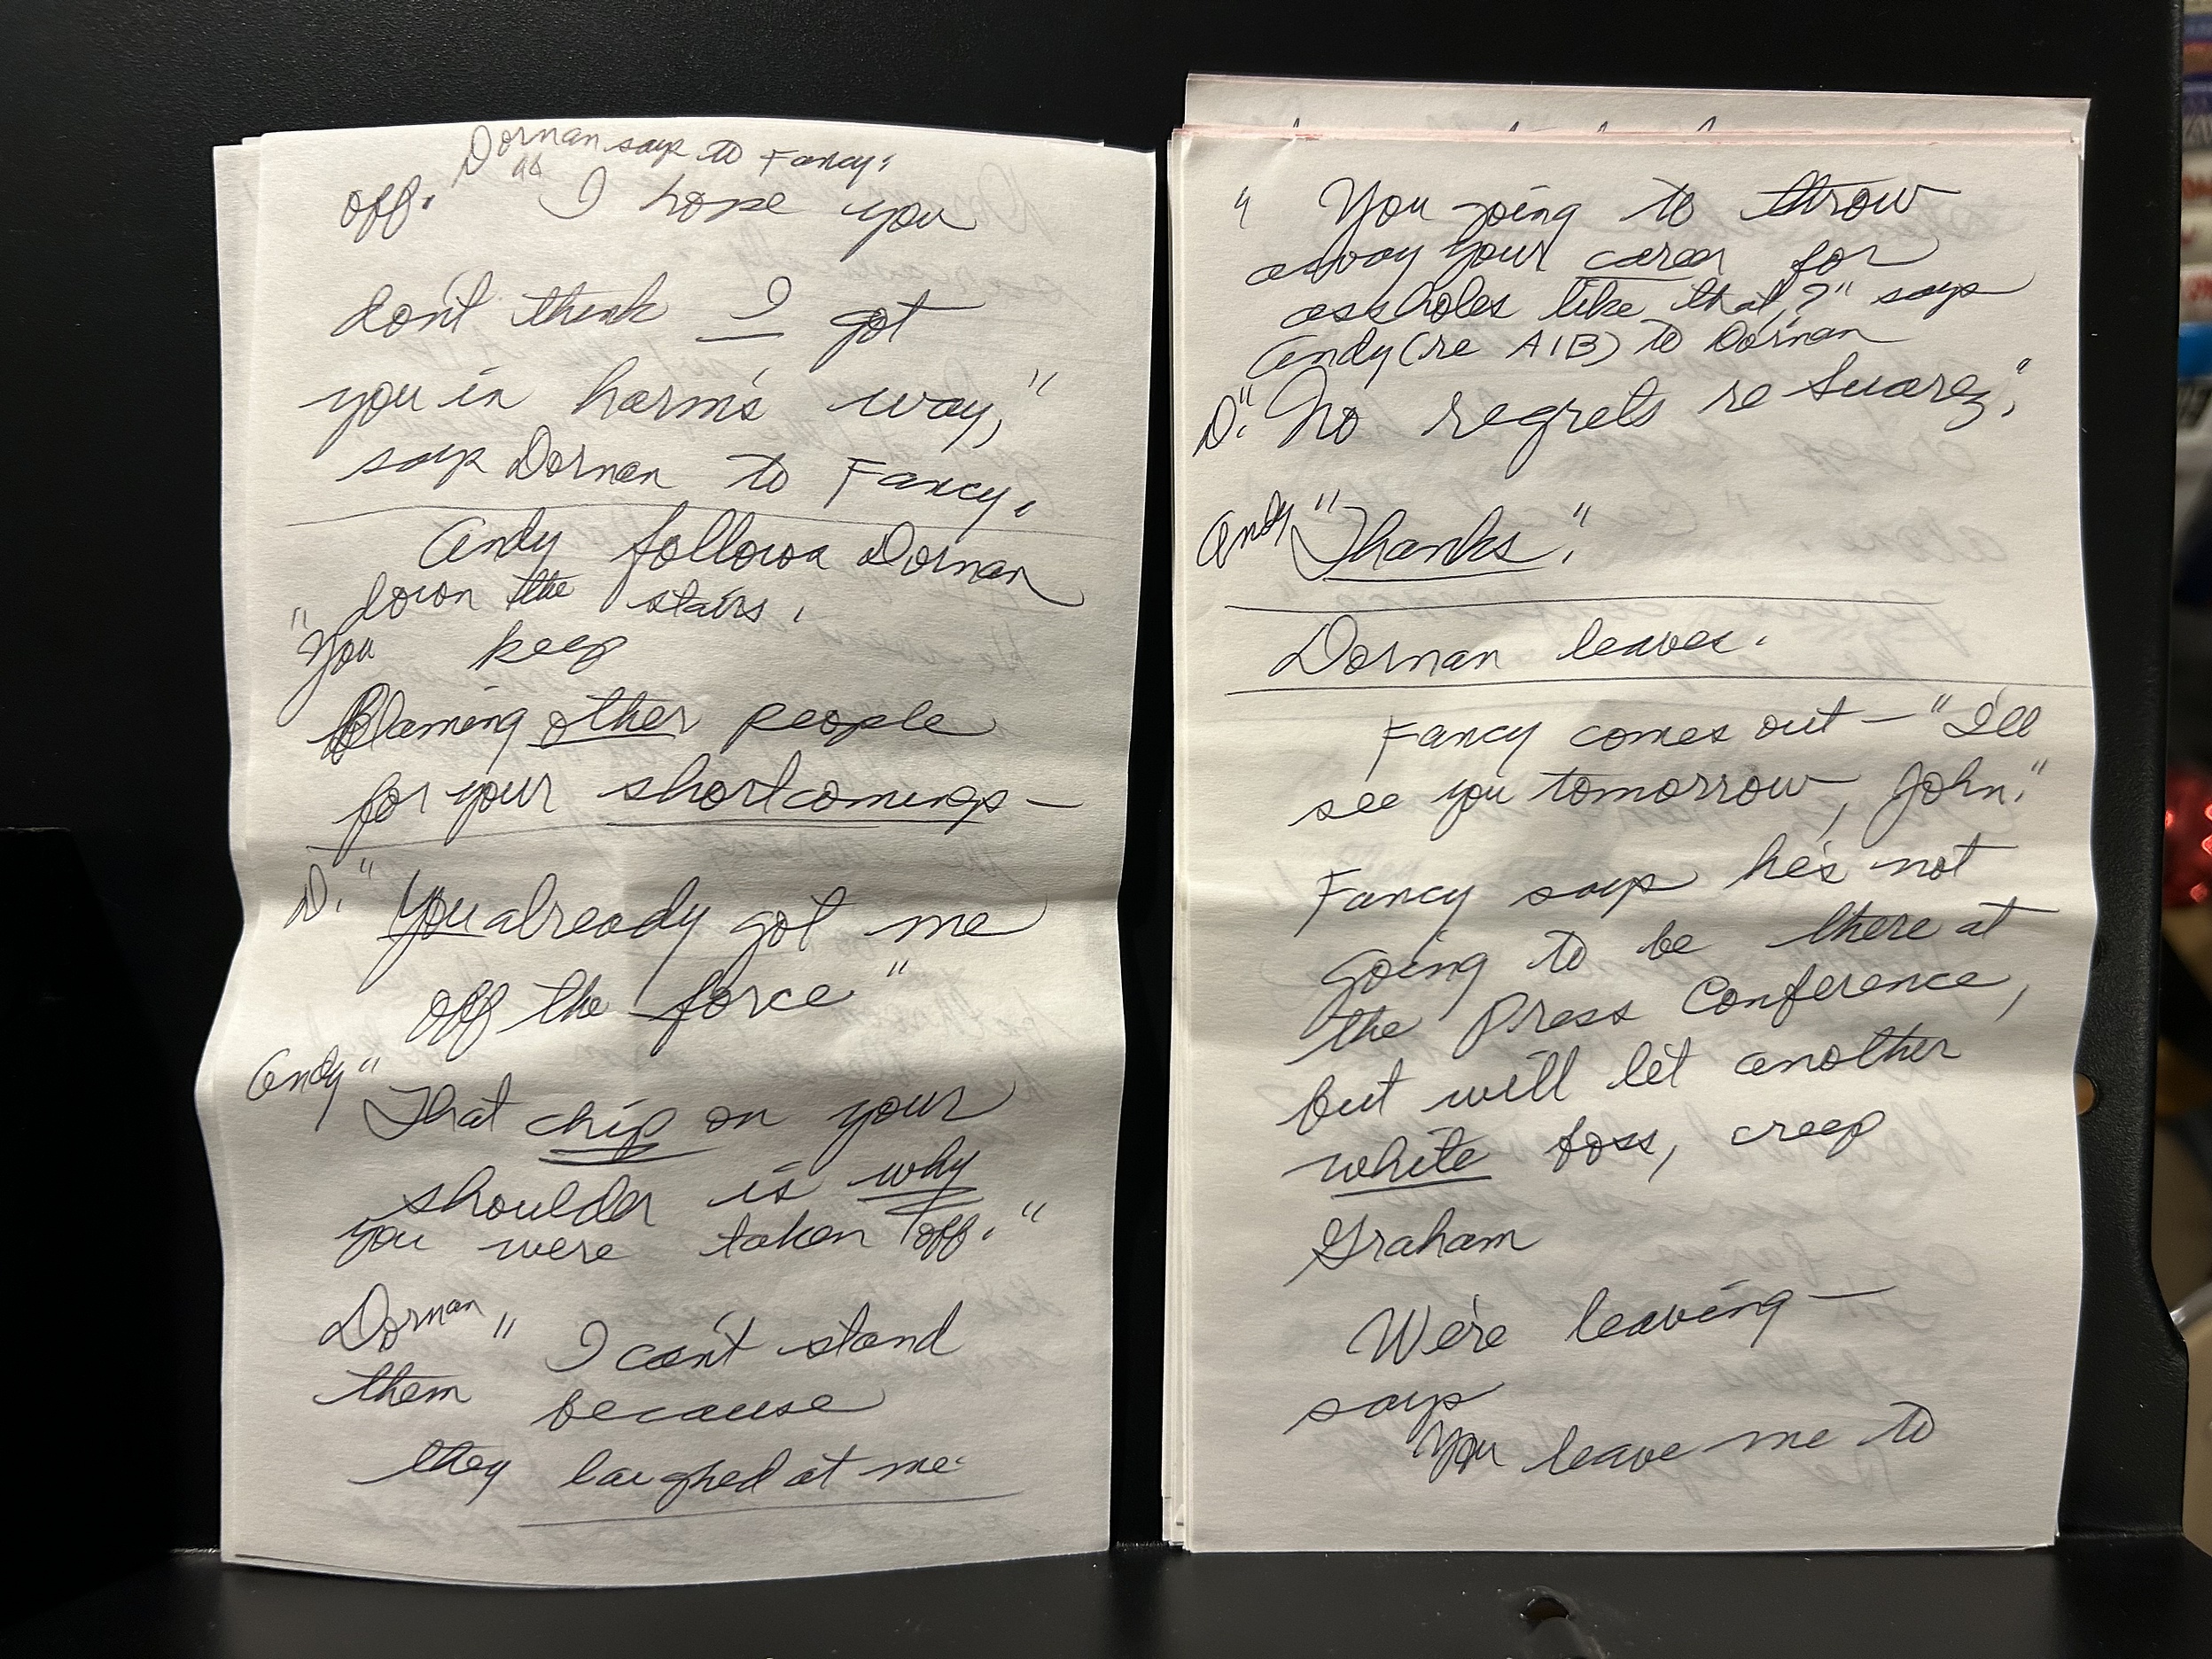 Dornan says to Fancy,
off. "I hope you
don't think I got
you in harm's way,"
says Dornan to Fancy.
Andy follows Dornan
down the stairs.
"You keep
Blaming other people
for your shortcomings —
D. "You already got me
off the force"
Andy "That chip on your
shoulder is why
you were taken off."
Dornan "I can't stand
them because
they laughed at me.
"You going to throw
away your career for
assholes like that?" says
Andy (re AIB) to Dornan
D. "No regrets re Suarez."
Andy "Thanks."
Dornan leaves.
Fancy comes out — "I'll
see you tomorrow, John."
Fancy says he's not
going to be there at
the Press Conference,
but will let another
white boss, creep
Graham
We're leaving —
says
You leave me to